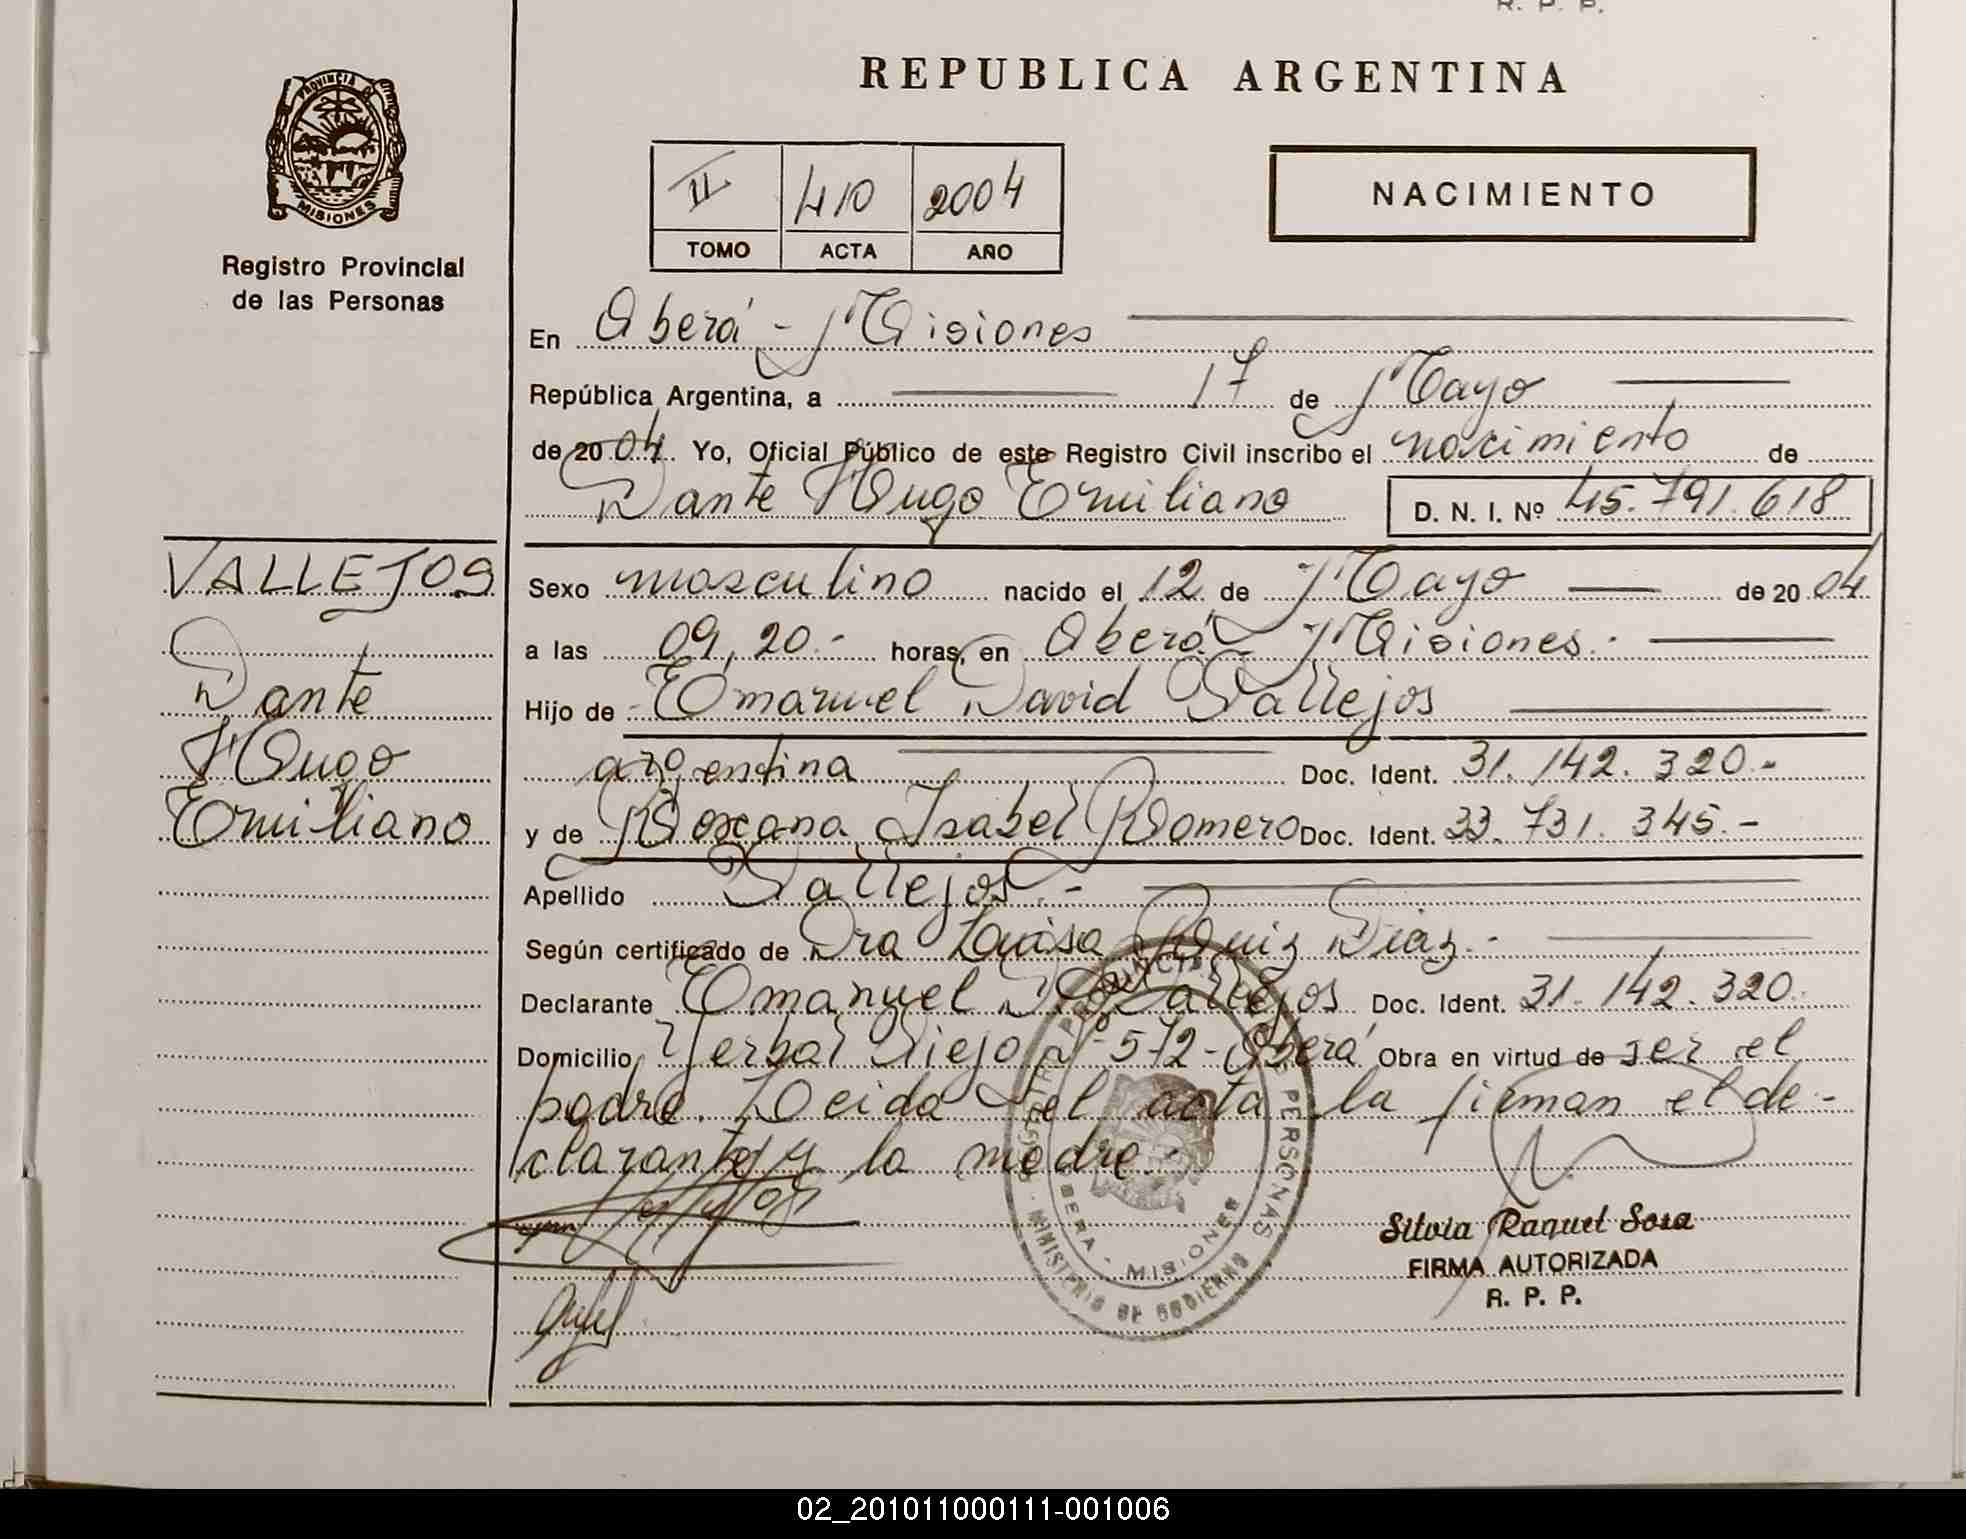 R. P. P.
REPUBLICA ARGENTINA
PROVINCIA DE
MISIONES
Registro Provincial
de las Personas
II 410 2004
TOMO ACTA AÑO
NACIMIENTO
En Oberá - Misiones
República Argentina, a 17 de Mayo
de 2004. Yo, Oficial Público de este Registro Civil inscribo el nacimiento de
Dante Hugo Emiliano D. N. I. Nº 45.791.618
VALLEJOS
Dante
Hugo
Emiliano
Sexo masculino nacido el 12 de Mayo de 2004
a las 09,20.- horas, en Oberá - Misiones.-
Hijo de Emanuel David Vallejos
argentina Doc. Ident. 31.142.320.-
y de Roxana Isabel Romero Doc. Ident. 33.731.345.-
Apellido Vallejos.-
Según certificado de Dra Luisa Ruiz Diaz.-
Declarante Emanuel D. Vallejos Doc. Ident. 31.142.320.
Domicilio Yerbal Viejo Nº 572 - Oberá Obra en virtud de ser el
padre. Leida el acta la firman el de-
clarante y la madre.-
PROVINCIAL DE PERSONAS
MINISTERIO DE GOBIERNO
OBERA - MISIONES
Silvia Raquel Sosa
FIRMA AUTORIZADA
R. P. P.
02_201011000111-001006